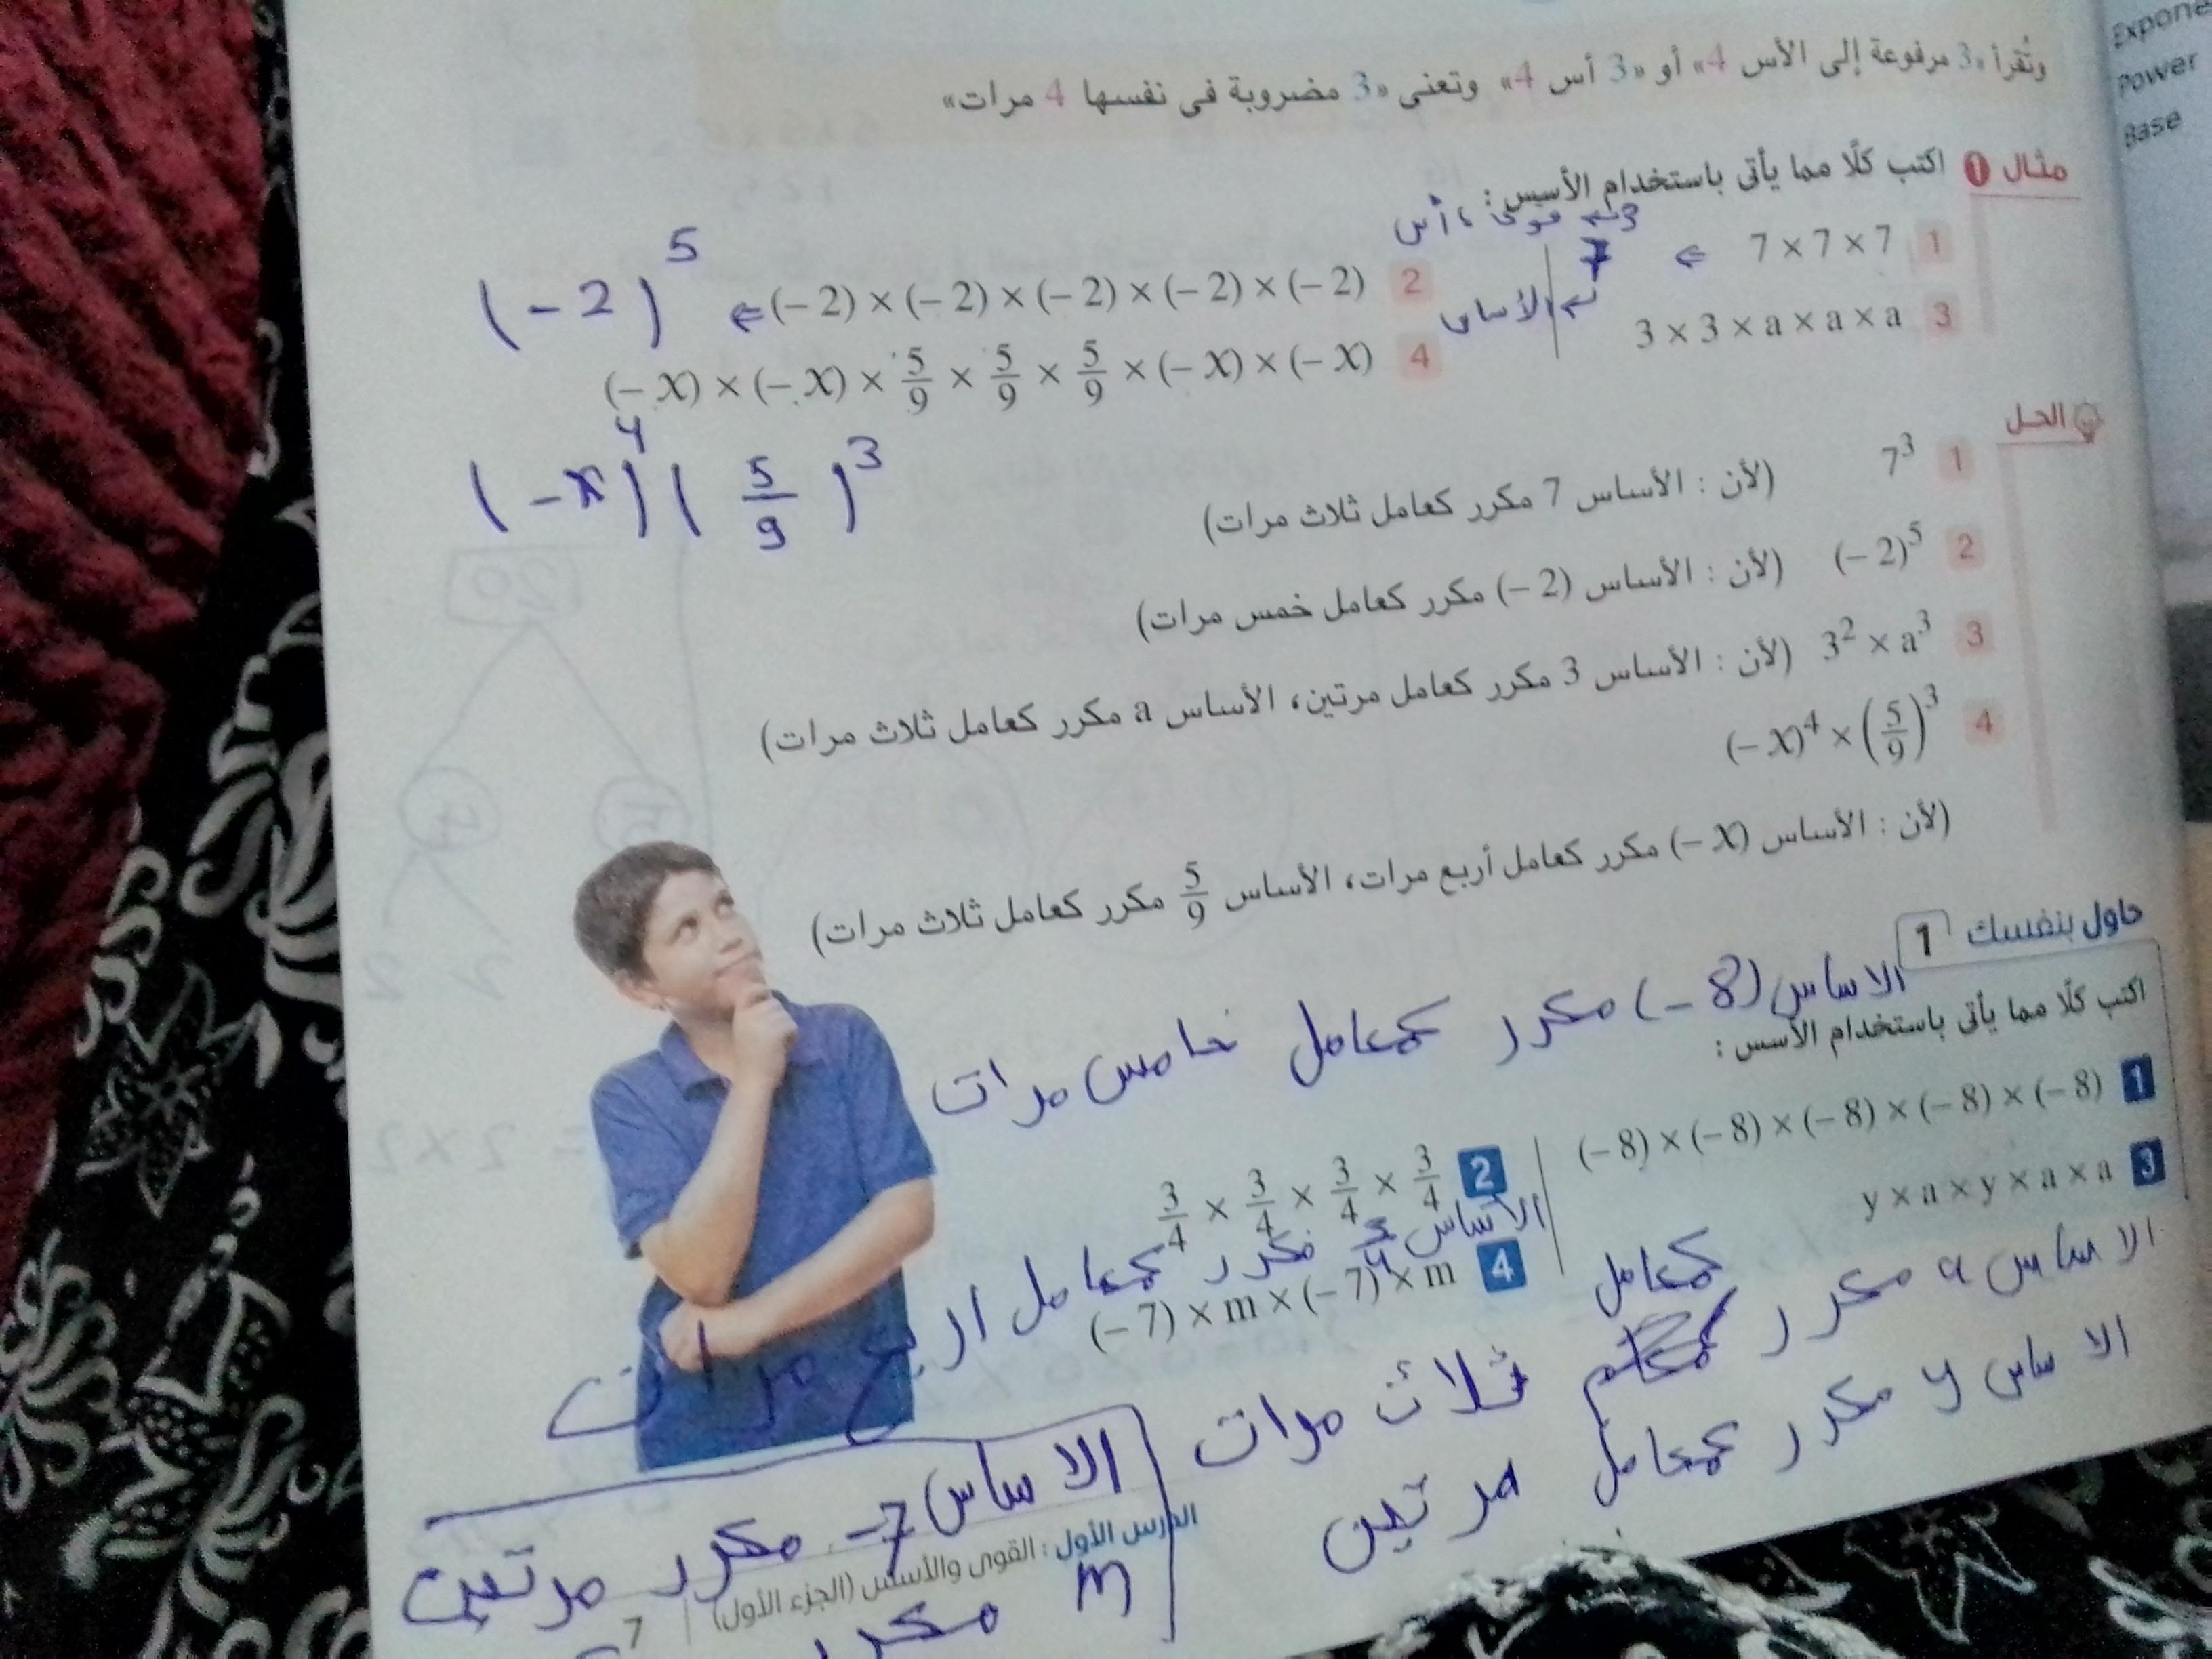 وتُقرأ «3 مرفوعة إلى الأس 4» أو «3 أس 4» وتعنى «3 مضروبة فى نفسها 4 مرات»
Power
Base
مثال 1 اكتب كلًا مما يأتى باستخدام الأسس :
1 7 × 7 × 7 ⇐ 7 3 ← قوى ، أس
الأساس
2 (– 2) × (– 2) × (– 2) × (– 2) × (– 2) ⇐ (– 2)⁵
3 3 × 3 × a × a × a
4 (– x) × (– x) × 5/9 × 5/9 × 5/9 × (– x) × (– x)
(– x)⁴ (5/9)³
الحل
1 7³ (لأن : الأساس 7 مكرر كعامل ثلاث مرات)
2 (– 2)⁵ (لأن : الأساس (– 2) مكرر كعامل خمس مرات)
3 3² × a³ (لأن : الأساس 3 مكرر كعامل مرتين، الأساس a مكرر كعامل ثلاث مرات)
4 (– x)⁴ × (5/9)³
(لأن : الأساس (– x) مكرر كعامل أربع مرات، الأساس 5/9 مكرر كعامل ثلاث مرات)
حاول بنفسك 1
الاساس (– 8) مكرر كعامل خامس مرات
اكتب كلًا مما يأتى باستخدام الأسس :
1 (– 8) × (– 8) × (– 8) × (– 8) × (– 8)
2 3/4 × 3/4 × 3/4 × 3/4
الاساس 3/4 مكرر كعامل اربع مرات
3 y × a × y × a × a
4 (– 7) × m × (– 7) × m
الا ساس a مكرر كعامل ثلاث مرات
الا ساس y مكرر كعامل مرتين
الا ساس 7– مكرر مرتين
m مكرر
الدرس الأول : القوى والأسس (الجزء الأول) | 7